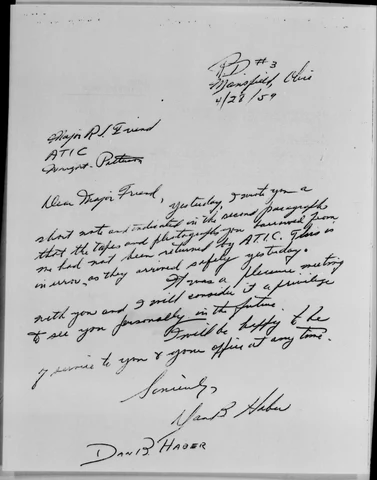 RD #3
Mansfield, Ohio
4/28/59
Major R J Friend
ATIC
Wright-Patterson
Dear Major Friend,
Yesterday, I wrote you a
short note and indicated in the second paragraph
that the tapes and photographs you borrowed from
me had not been returned by ATIC. This is
in error, as they arrived safely yesterday.
It was a pleasure meeting
with you and I will consider it a privilege
to see you personally in the future.
I will be happy to be
of service to you & your office at any time.
Sincerely,
Dan B Haber
DAN B HABER